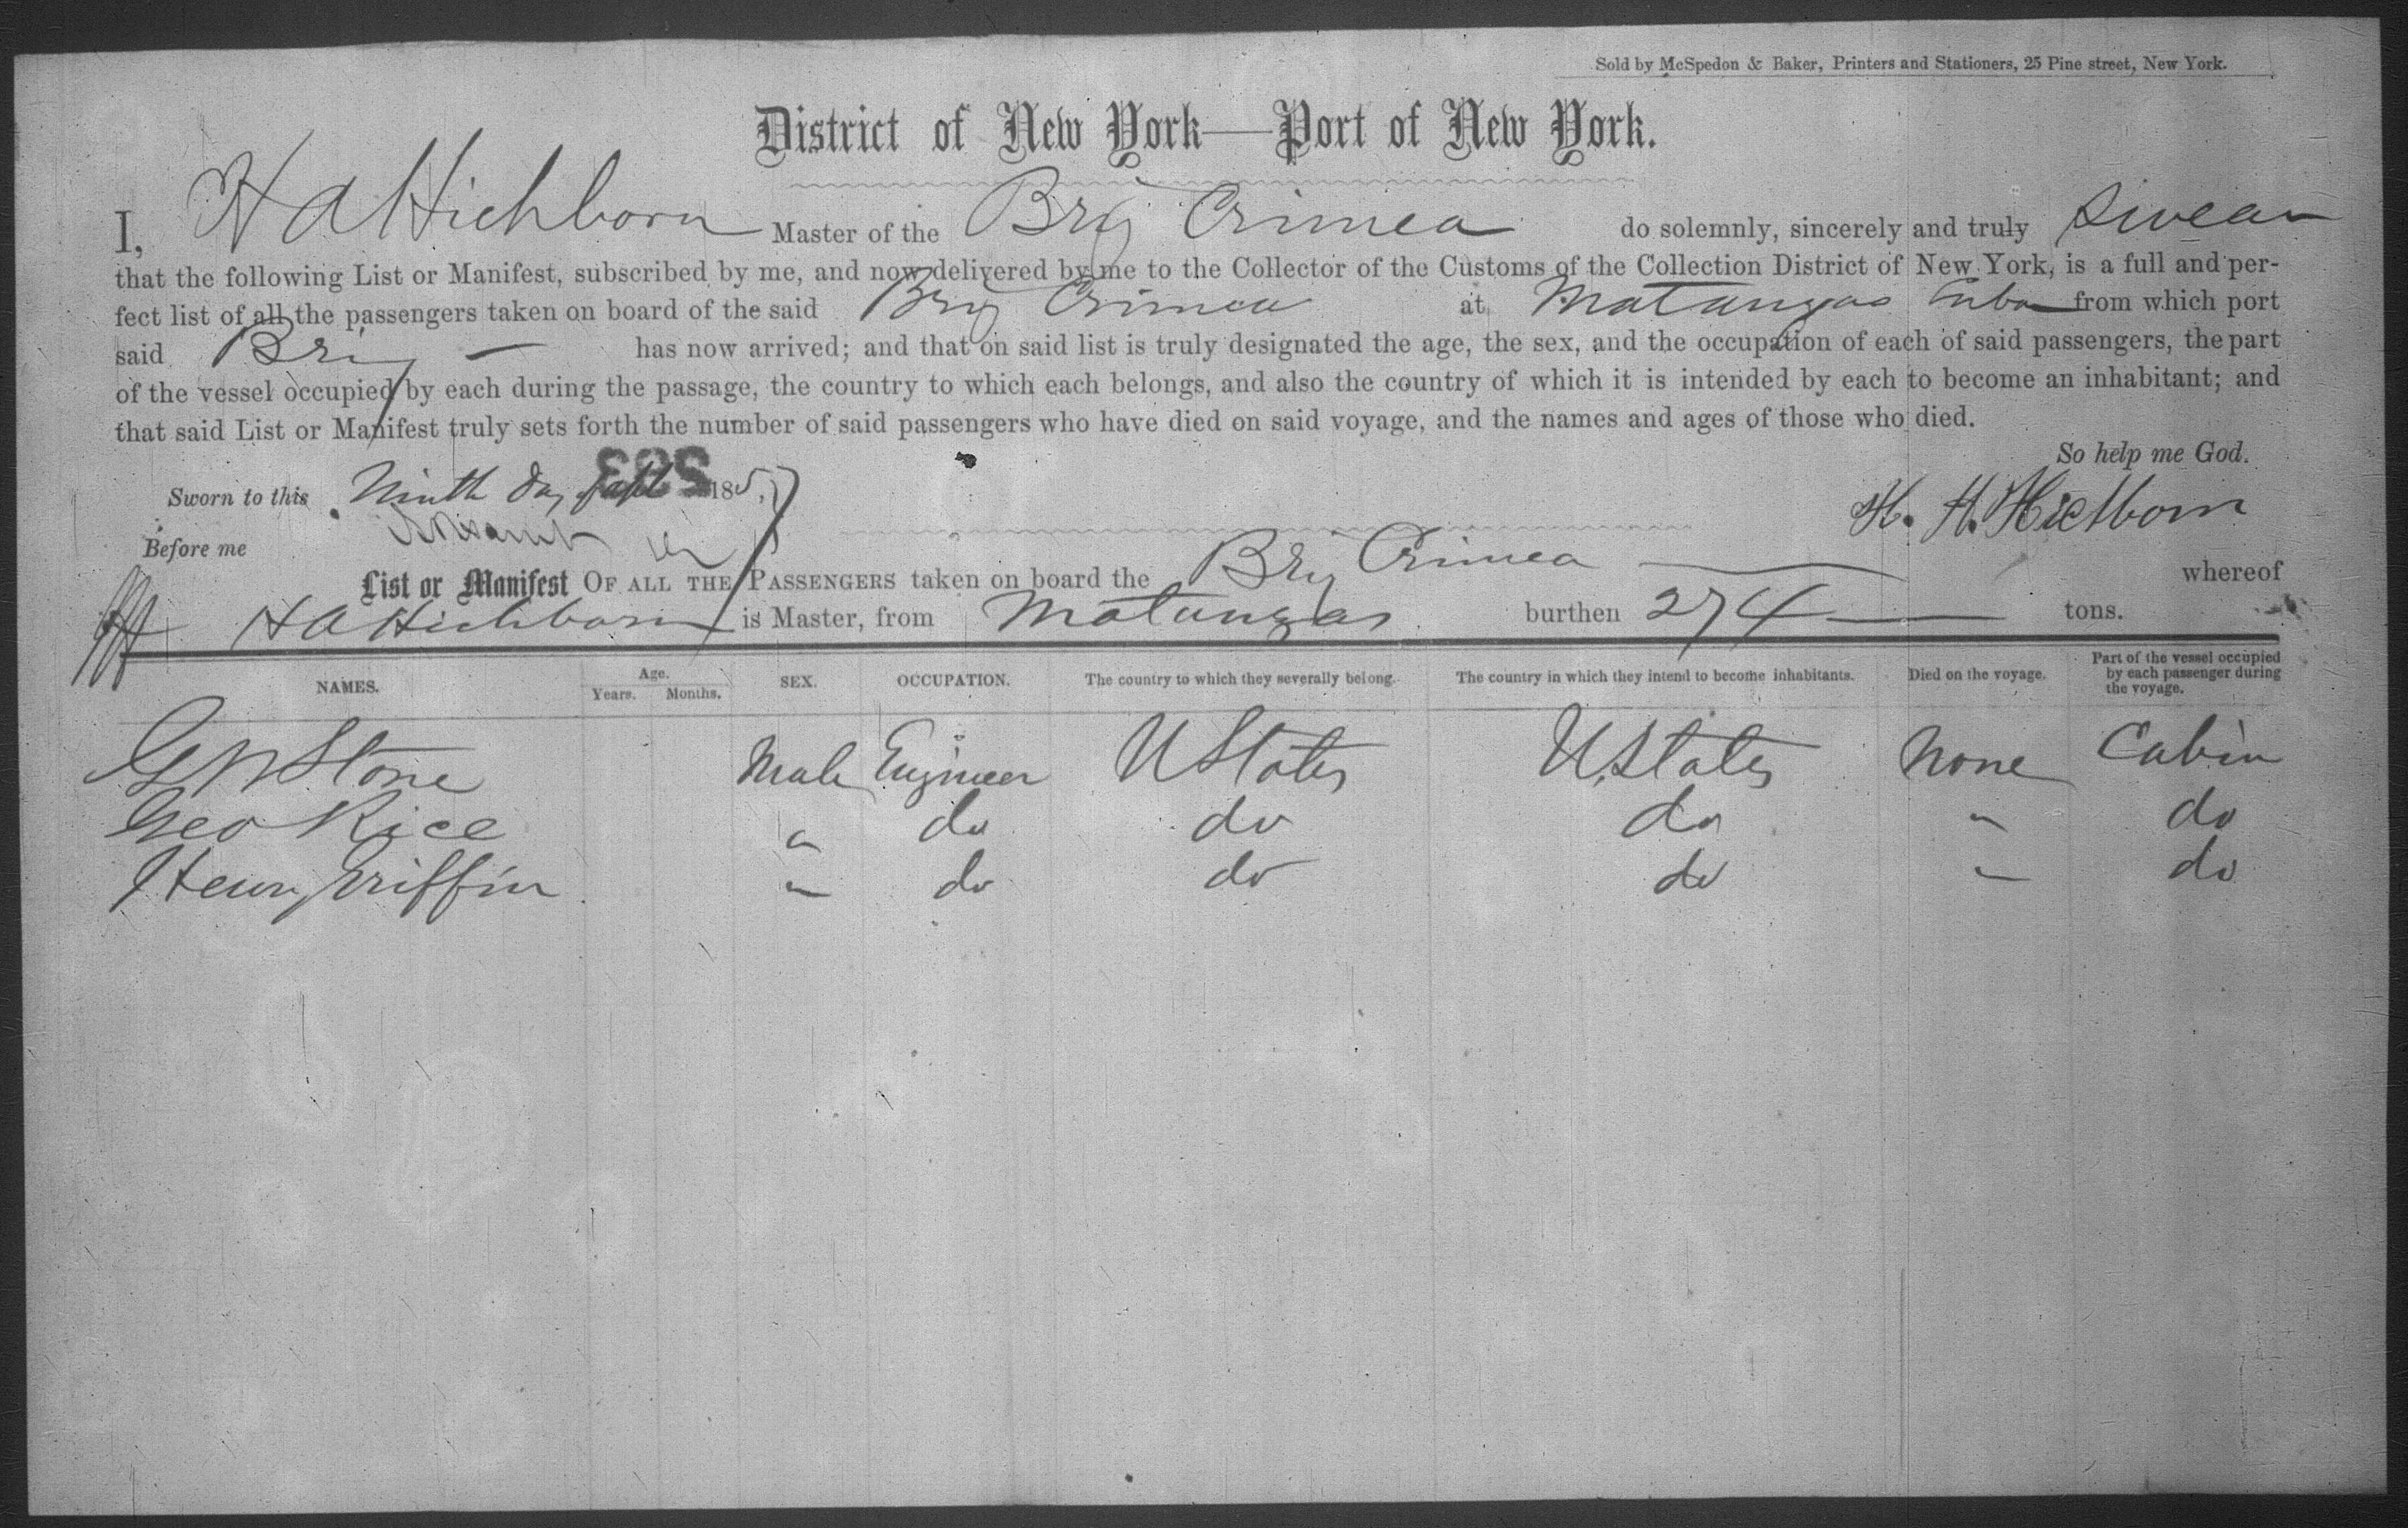 Sold by McSpedon & Baker, Printers and Stationers, 25 Pine street, New York.
District of New York—Port of New York.
I, H A Hichborn Master of the Brig Crimea do solemnly, sincerely and truly Swear
that the following List or Manifest, subscribed by me, and now delivered by me to the Collector of the Customs of the Collection District of New York, is a full and per-
fect list of all the passengers taken on board of the said Brig Crimea at Matanzas Cuba from which port
said Brig — has now arrived; and that on said list is truly designated the age, the sex, and the occupation of each of said passengers, the part
of the vessel occupied by each during the passage, the country to which each belongs, and also the country of which it is intended by each to become an inhabitant; and
that said List or Manifest truly sets forth the number of said passengers who have died on said voyage, and the names and ages of those who died.
So help me God.
Sworn to this Ninth day Sept 185
H. H. Hichborn
Before me
List or Manifest OF ALL THE PASSENGERS taken on board the Brig Crimea — whereof
H A Hichborn is Master, from Matanzas burthen 274 — tons.
NAMES. Age. Years. Months. SEX. OCCUPATION. The country to which they severally belong. The country in which they intend to become inhabitants. Died on the voyage. Part of the vessel occupied by each passenger during the voyage.
Stone Male Engineer U States U. States None Cabin
Geo Rice " do do do " do
Henry Griffin " do do do " do